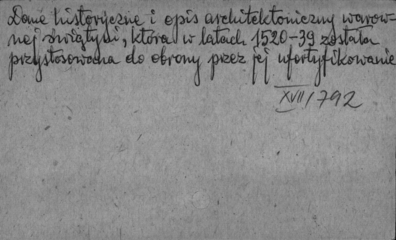 Dane historyczne i opis architektoniczny warow-
nej świątyni, która w latach 1520-39 została
przystosowana do obrony przez jej ufortyfikowanie
XVII/792